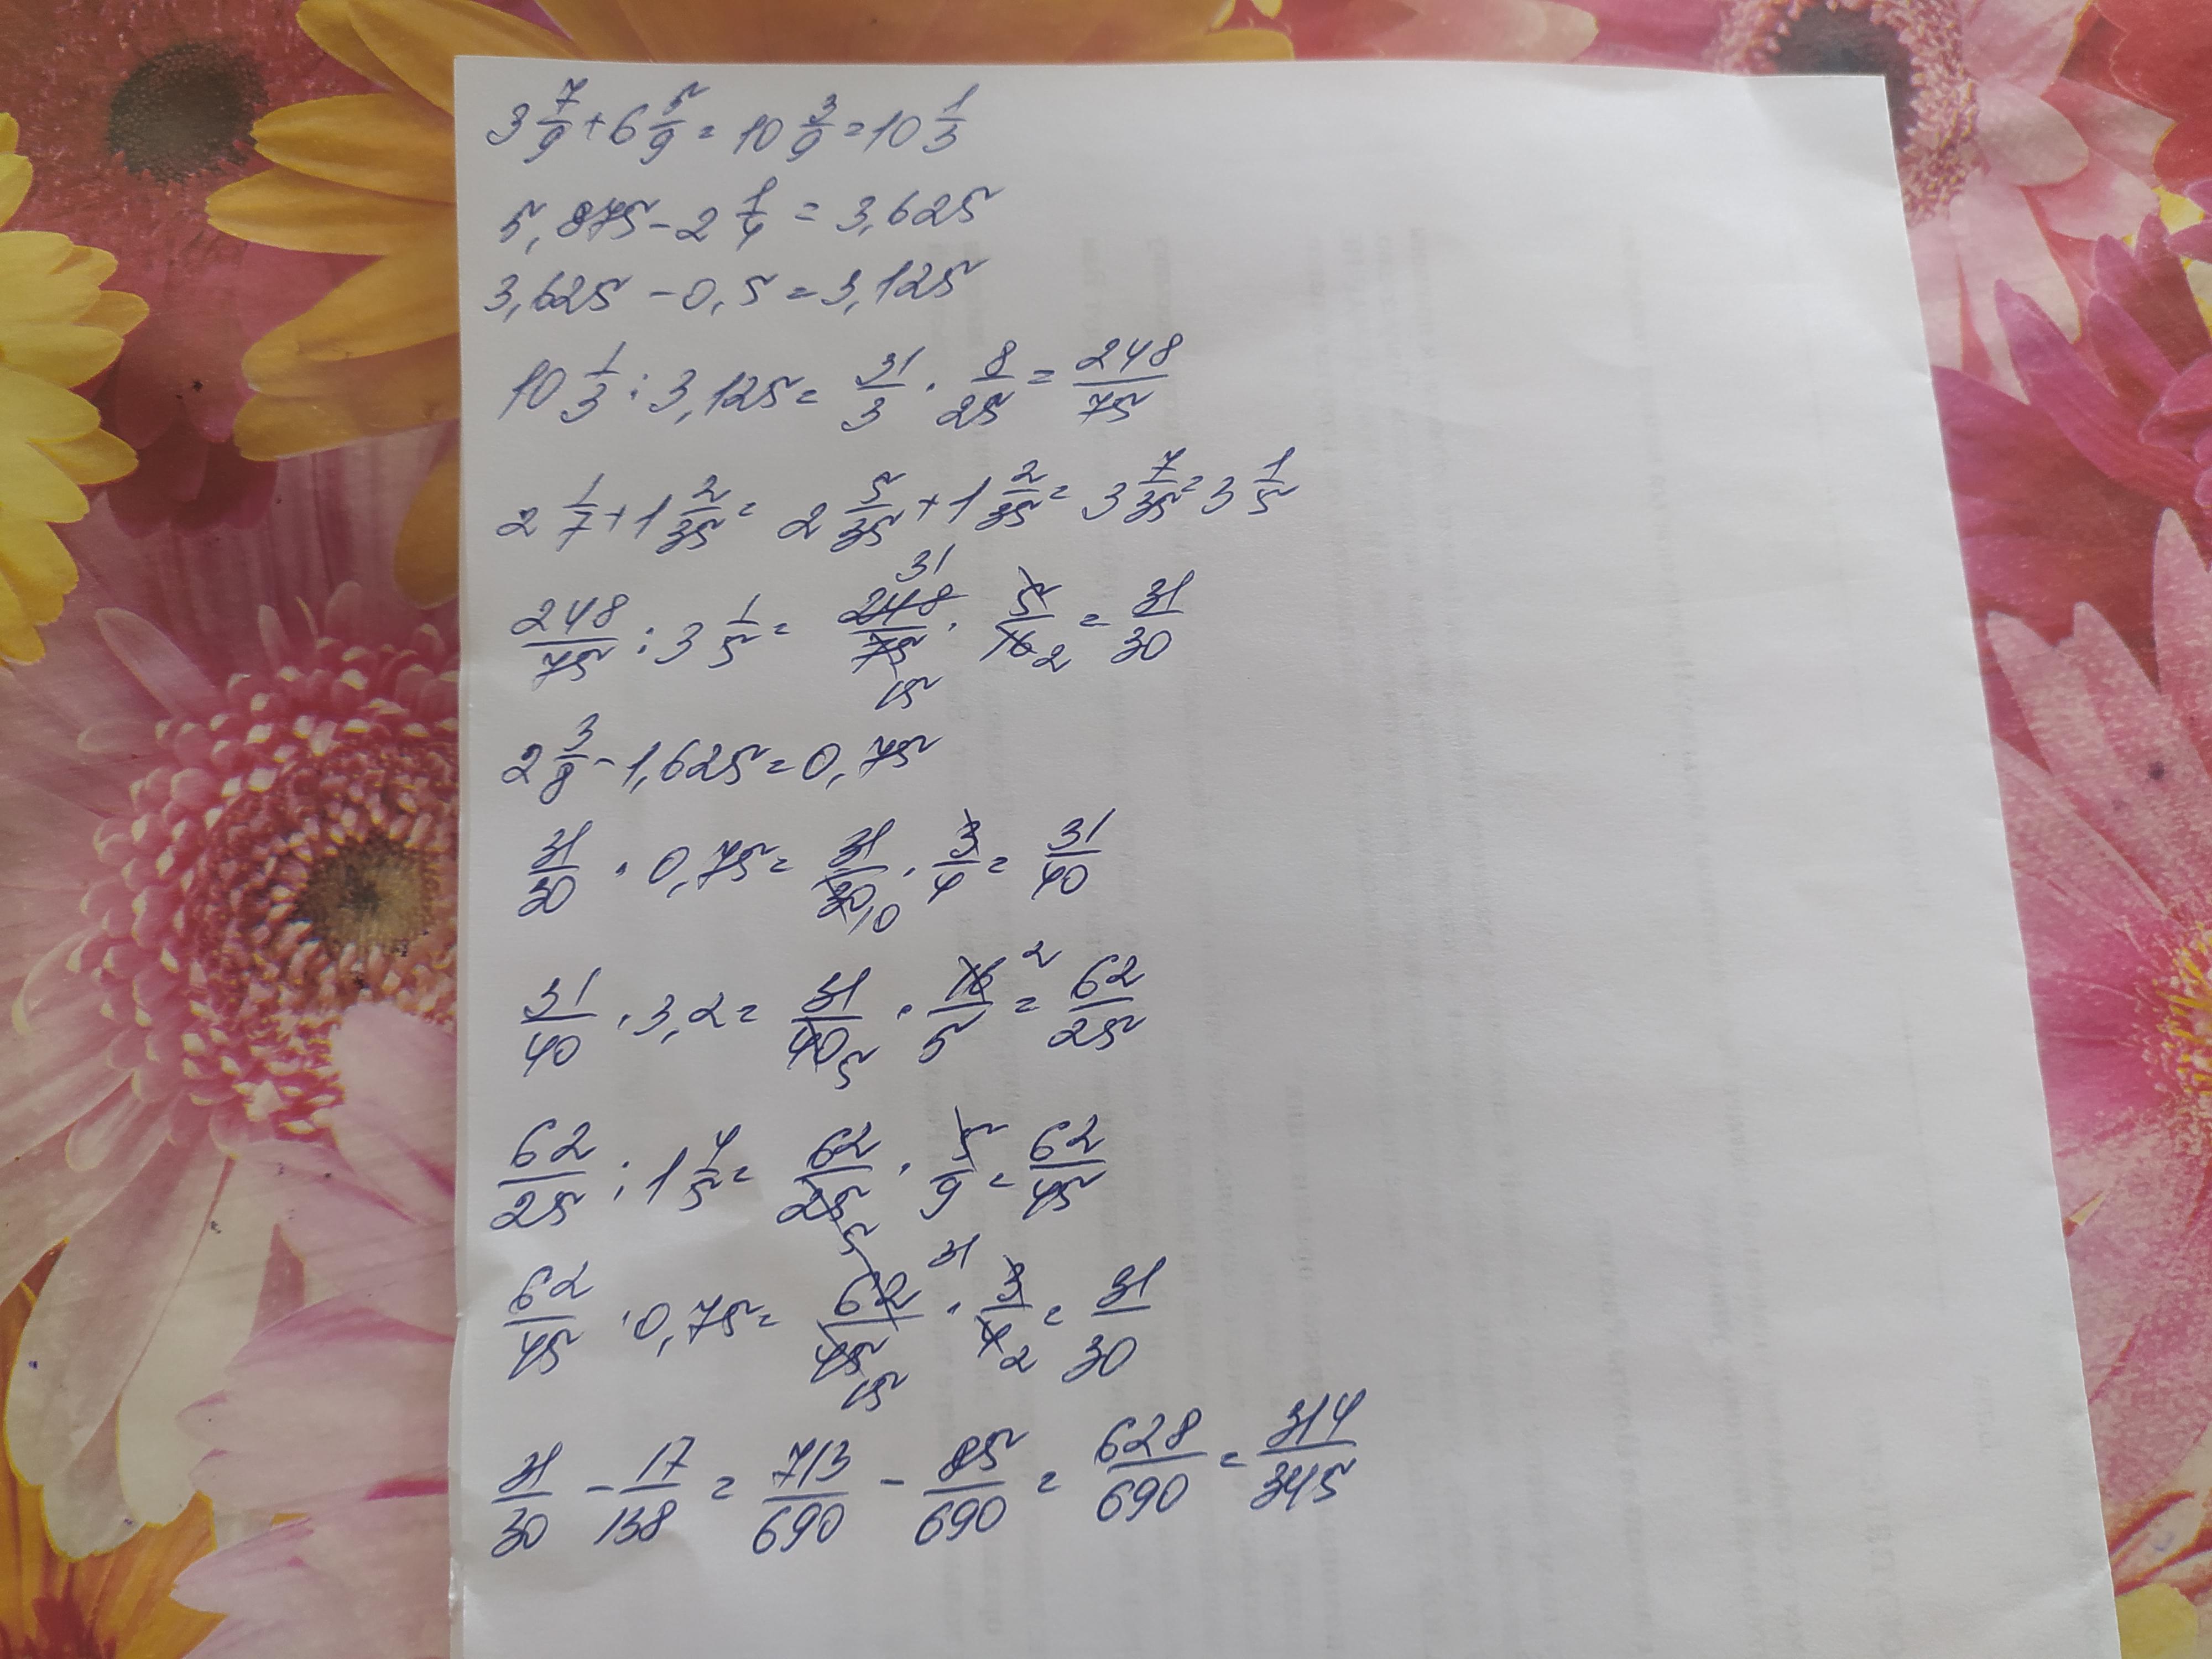 3 7/9 + 6 5/9 = 10 3/9 = 10 1/3
5,875 - 2 1/4 = 3,625
3,625 - 0,5 = 3,125
10 1/3 : 3,125 = 31/3 · 8/25 = 248/75
2 1/7 + 1 2/35 = 2 5/35 + 1 2/35 = 3 7/35 = 3 1/5
31
248/75 : 3 1/5 = 248/75 · 5/16 2 = 31/30
15
2 3/8 - 1,625 = 0,75
31/30 · 0,75 = 31/30 10 · 3/4 = 31/40
2
31/40 · 3,2 = 31/40 5 · 16/5 = 62/25
62/25 : 1 4/5 = 62/25 · 5/9 = 62/45
5 31
62/45 · 0,75 = 62/45 · 3/4 2 = 31/30
15
31/30 - 17/138 = 713/690 - 85/690 = 628/690 = 314/345